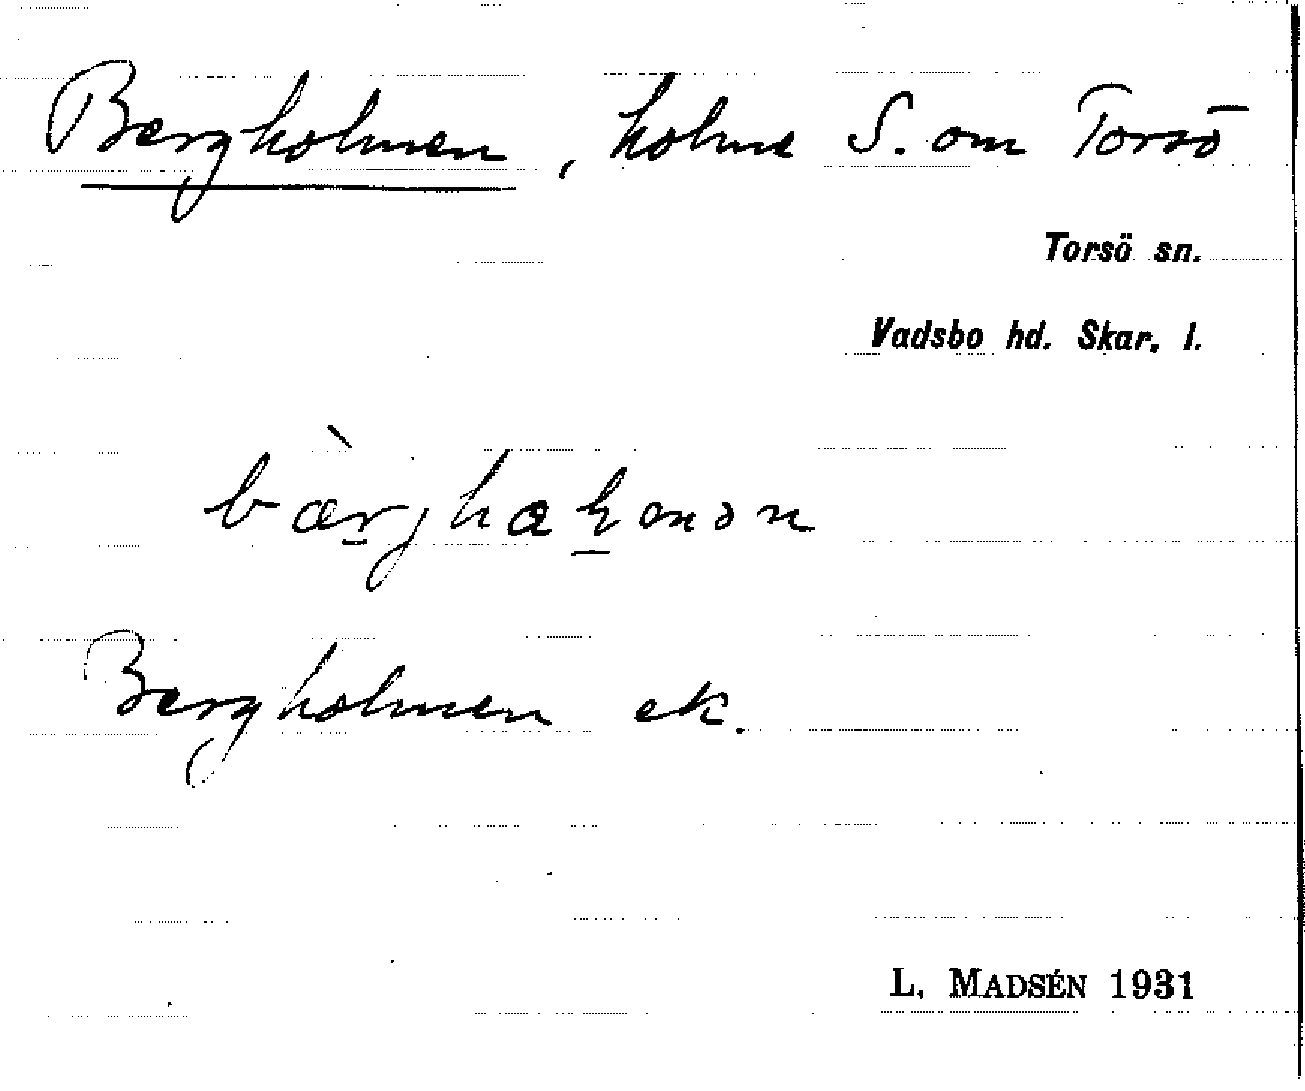 Bergholmen, holme S. om Torsö
Torsö sn.
Vadsbo hd. Skar. l.
Bergholmen ek.
L. MADSÉN 1931